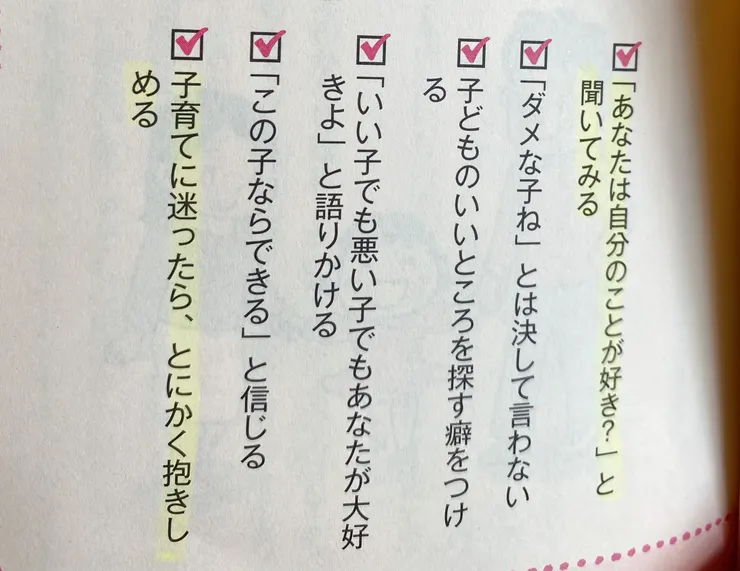 「あなたは自分のことが好き？」と
聞いてみる
「ダメな子ね」とは決して言わない
子どものいいところを探す癖をつけ
る
「いい子でも悪い子でもあなたが大好
きよ」と語りかける
「この子ならできる」と信じる
子育てに迷ったら、とにかく抱きし
める